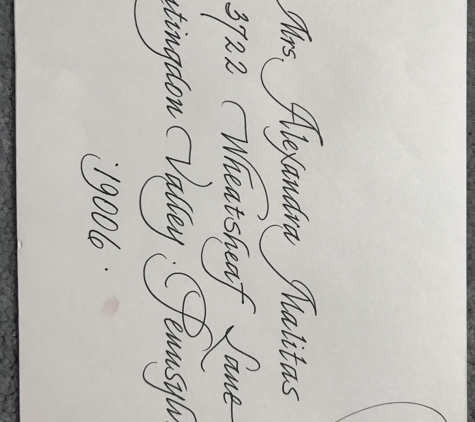 Mrs. Alexandra Malitas
3722 Wheatsheaf Lane
ntingdon Valley · Pennsylv
· 19006 ·